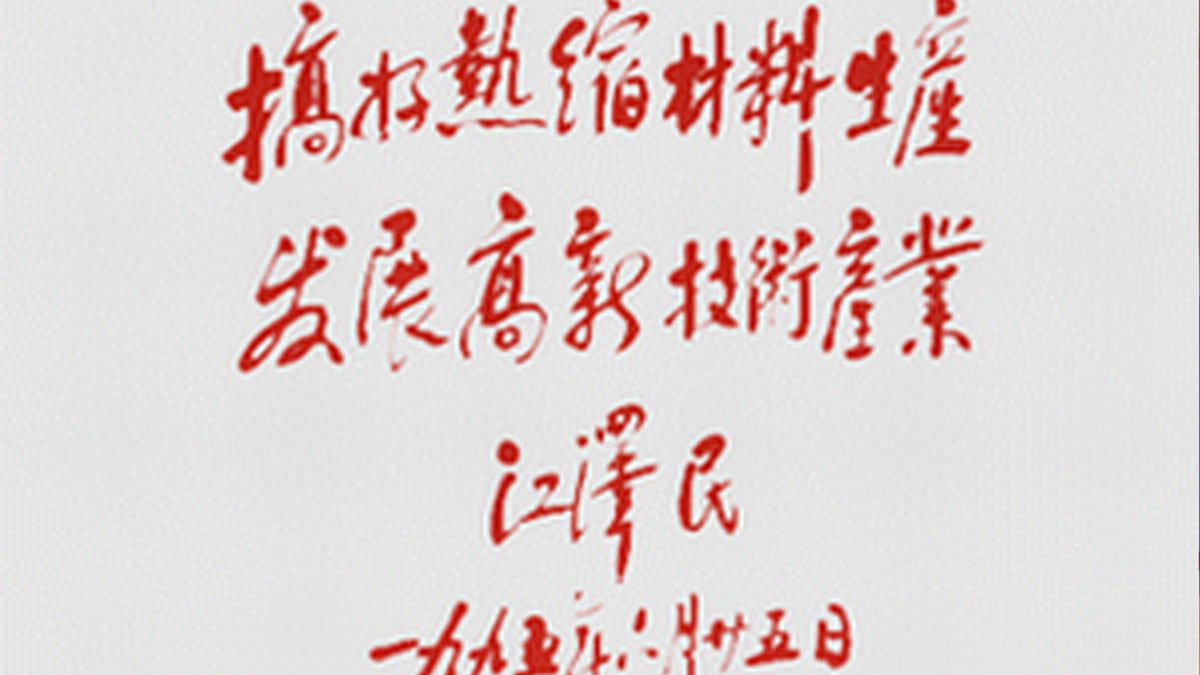 搞好熱缩材料生產
发展高新技術產業
江澤民
一九九五年六月廿五日